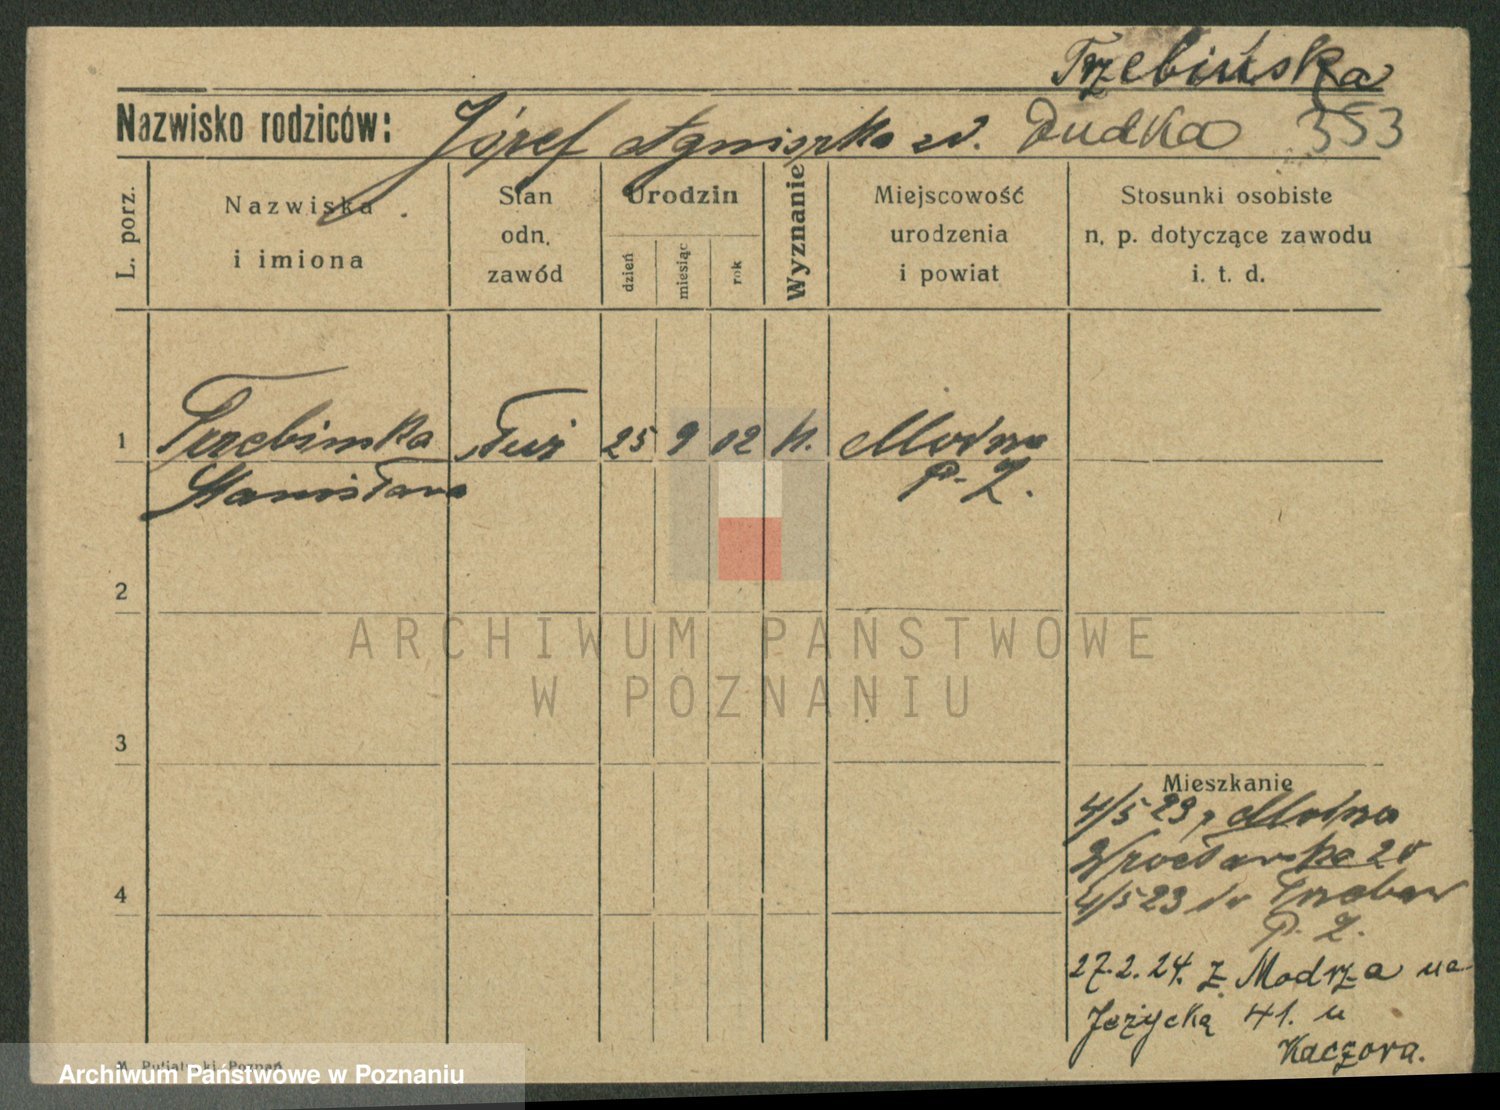 Trzebińska
Nazwisko rodziców: Józef Agnieszka z d. Dudka 353
L. porz.
Nazwiska i imiona
Stan odn. zawód
Urodzin
dzień
miesiąc
rok
Wyznanie
Miejscowość urodzenia i powiat
Stosunki osobiste n. p. dotyczące zawodu i. t. d.
1 Trzebinska Służ 25 9 02 k. Modrze
Stanisława P. Z.
2
ARCHIWUM PAŃSTWOWE
W POZNANIU
3
Mieszkanie
4/5 23 z Modrza
Wrocławska 20
4/5 23 do
P. Z.
4
27.2.24. z Modrza na
Jeżycką 41. u
Kaczora.
Archiwum Państwowe w Poznaniu